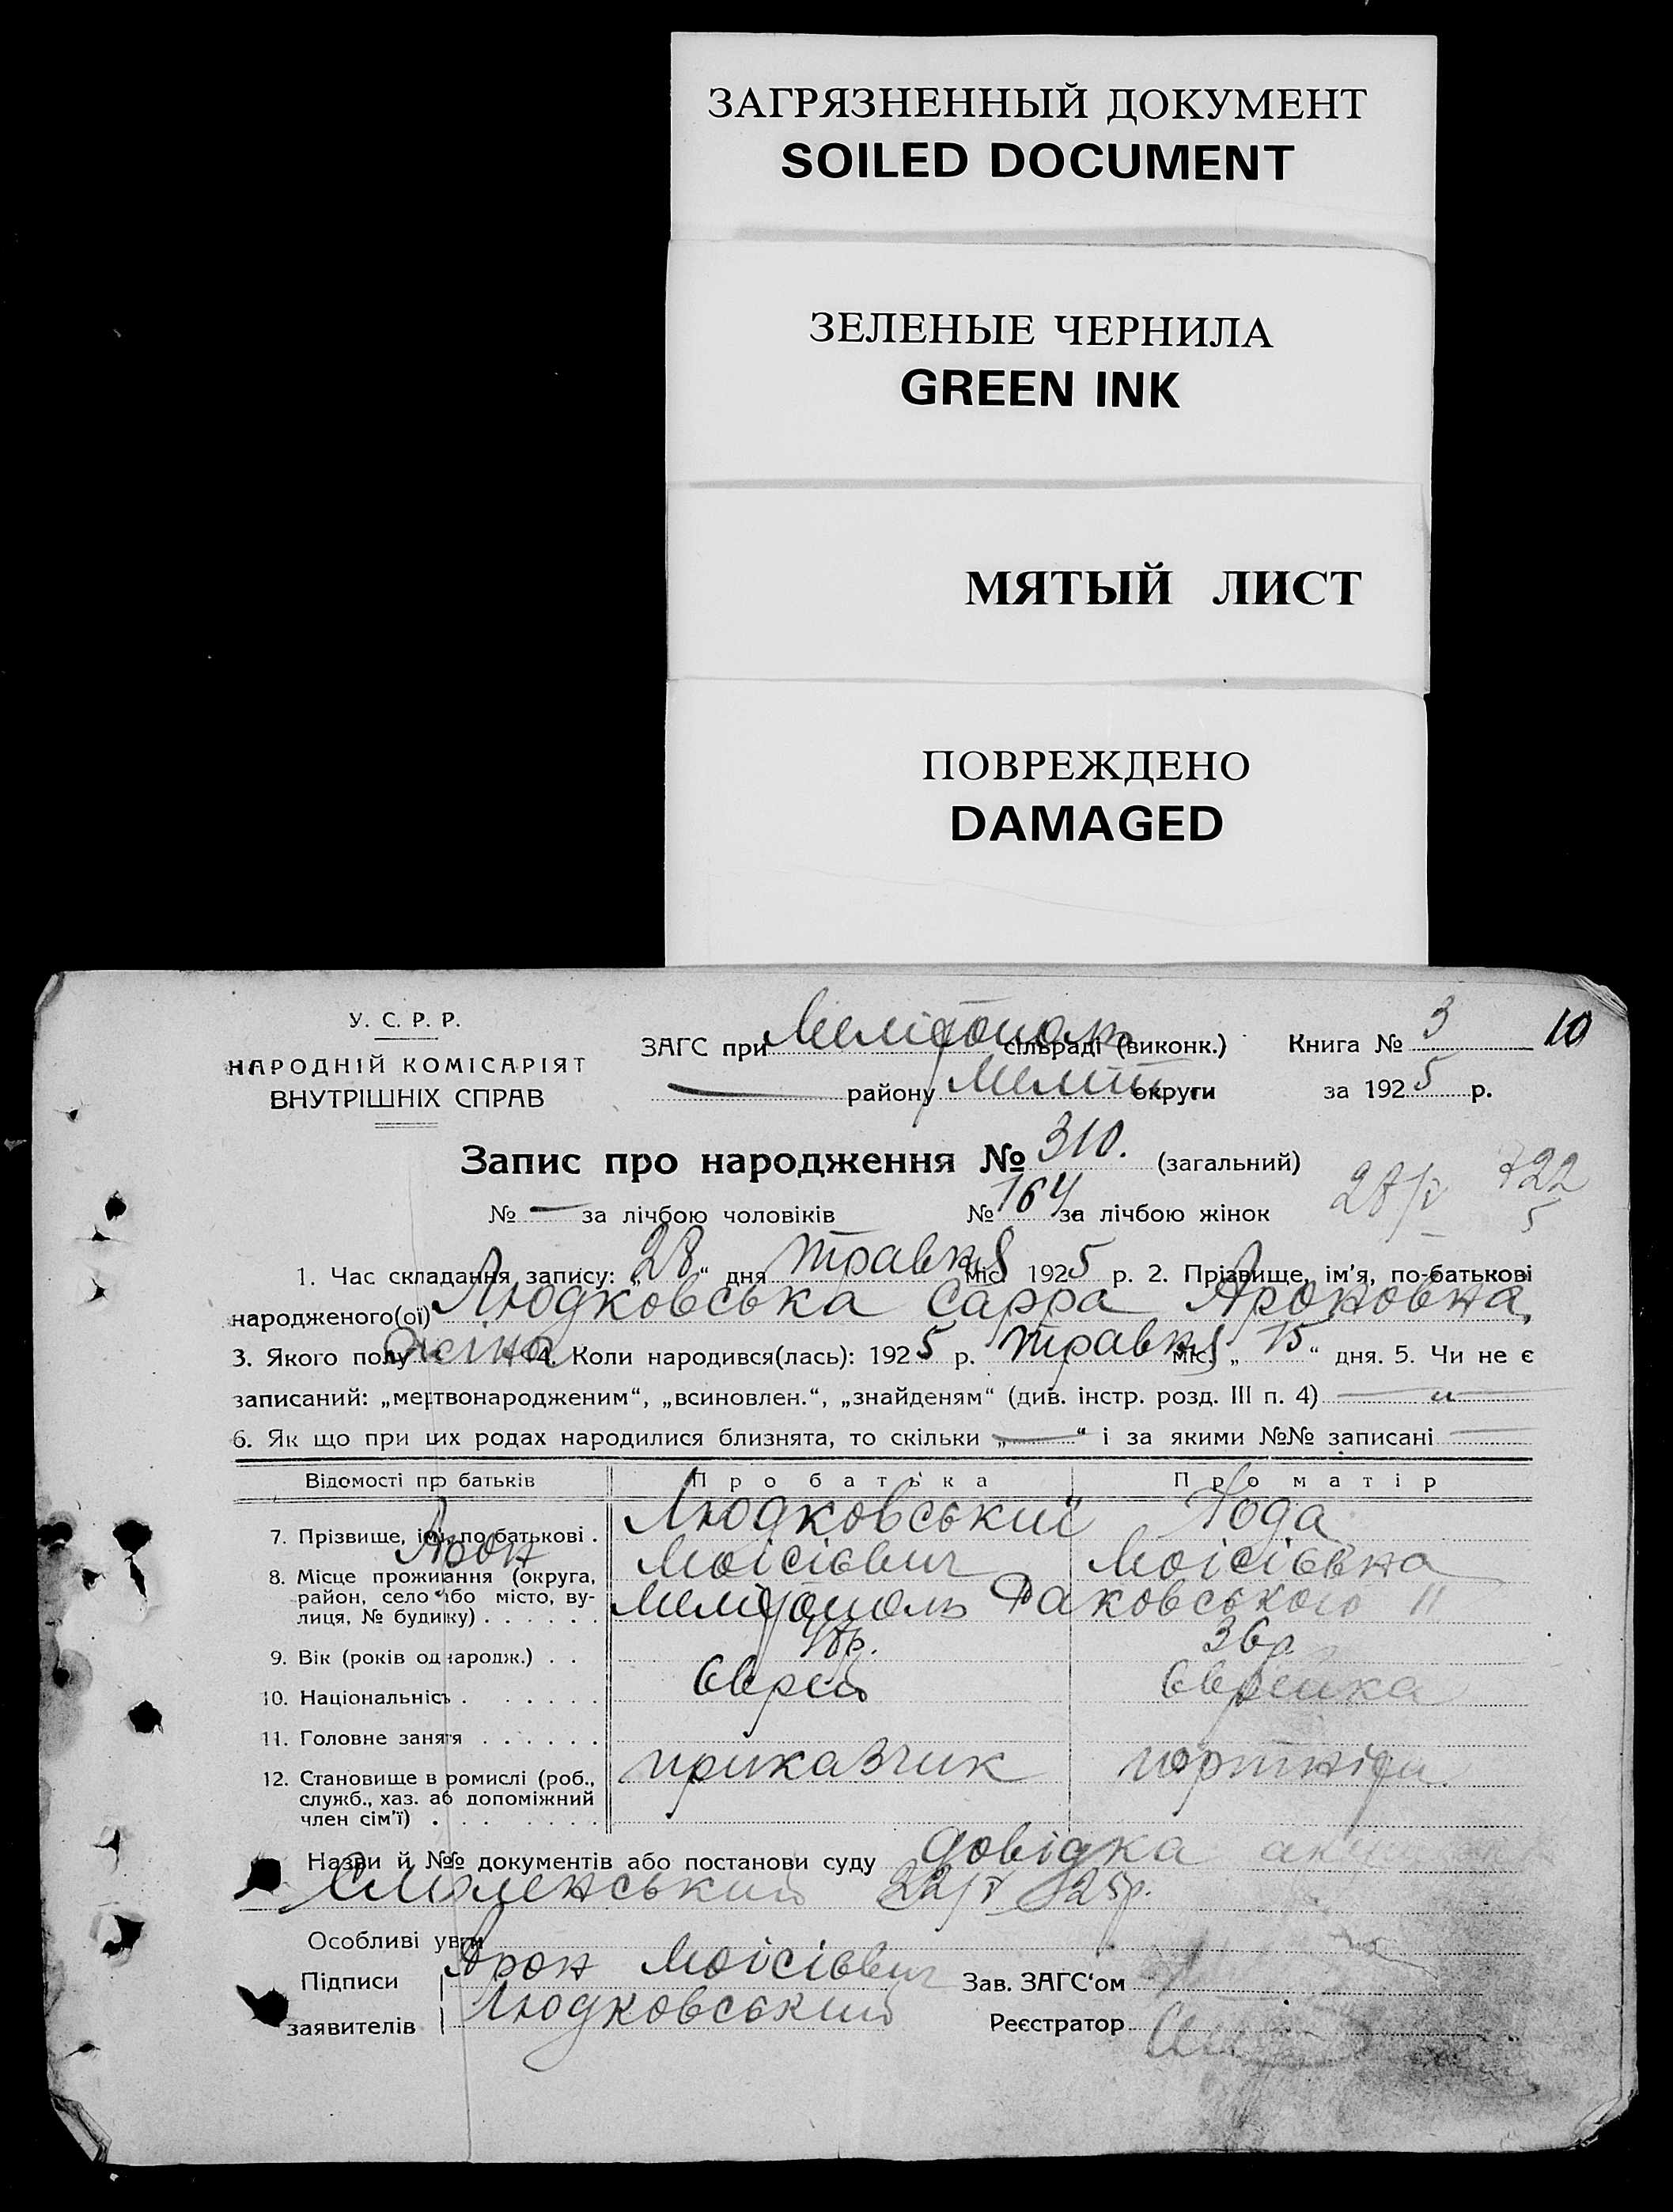 ЗАГРЯЗНЕННЫЙ ДОКУМЕНТ
SOILED DOCUMENT
ЗЕЛЕНЫЕ ЧЕРНИЛА
GREEN INK
МЯТЫЙ ЛИСТ
ПОВРЕЖДЕНО
DAMAGED
У. С. Р. Р.
НАРОДНІЙ КОМІСАРІЯТ
ВНУТРІШНІХ СПРАВ
ЗАГС при Мелітополь сільраді (виконк.) Книга № 3 10
— району Меліт округи за 1925 р.
Запис про народження № 310. (загальний)
№ — за лічбою чоловіків № 164 за лічбою жінок 28/V 722 5
1. Час складання запису: „28“ дня травня міс. 1925 р. 2. Прізвище, ім’я, по-батькові
народженого(ої) Людковська Сарра Ароновна,
3. Якого полу жіно 4. Коли народився(лась): 1925 р. травня міс. „15“ дня. 5. Чи не є
записаний: „мертвонародженим“, „всиновлен.“, „знайденям“ (див. інстр. розд. III п. 4) — „ —
6. Як що при цих родах народилися близнята, то скільки „—“ і за якими №№ записані —
Відомості про батьків Про батька Про матір
7. Прізвище, ім., по батькові . Людковський
Арон Моісієвич Моісієвна
8. Місце проживання (округа,
район, село або місто, ву-
лиця, № будинку) . . . . . . Мелітополь Раковського 11
9. Вік (років од народж.) . . 36р
10. Національність . . . . . . Єврей Єврейка
11. Головне заняття . . . . . .
12. Становище в промислі (роб.,
служб., хаз. або допоміжний
член сім’ї) . . . . . . . приказчик портніха
Назви й №№ документів або постанови суду довідка
Смоленський 22/V 25р.
Особливі уваги
Підписи Арон Моісієвич Зав. ЗАГС‘ом
заявителів Людковський Реєстратор